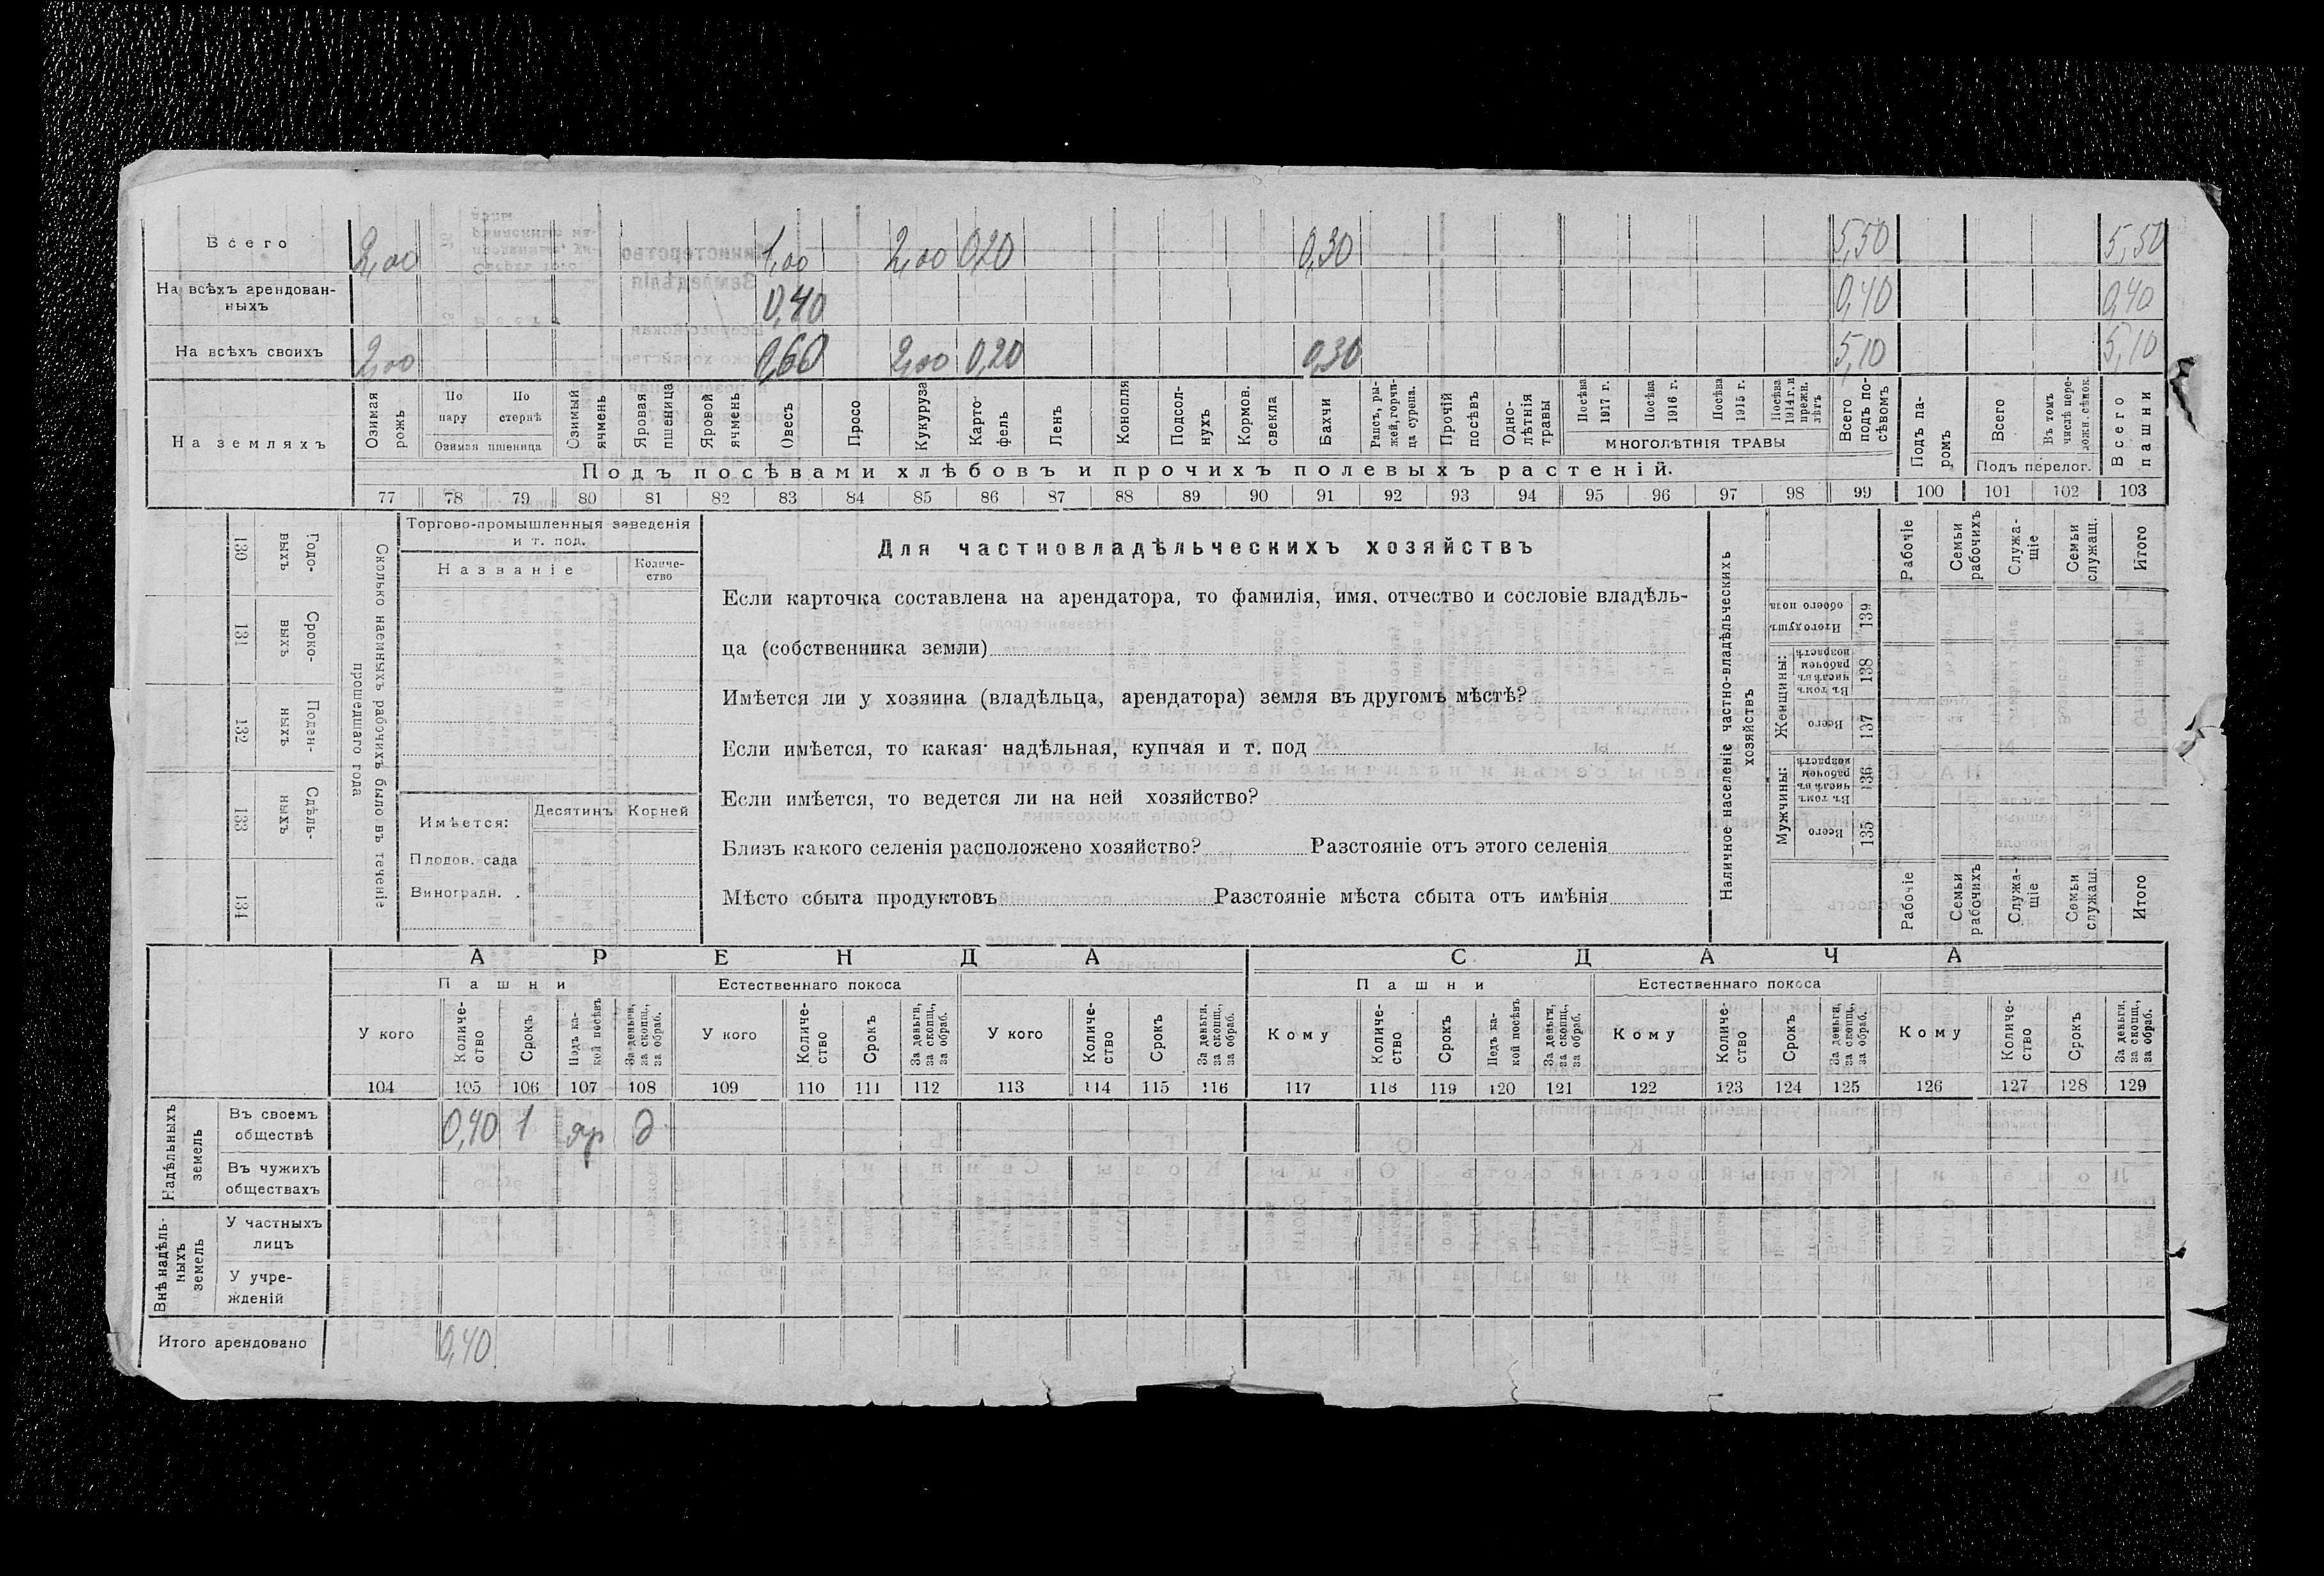 Всего 2,00 1,00 2,00 0,20 0,30 5,50 5,50
На всѣхъ арендован-
ныхъ 0,40 0,40 0,40
На всѣхъ своихъ 2,00 0,60 2,00 0,20 0,30 5,10 5,10
На земляхъ
Озимая рожь
По пару
По стернѣ
Озимая пшеница
Озимый ячмень
Яровая пшеница
Яровой ячмень
Овесъ
Просо
Кукуруза
Карто-
фель
Ленъ
Конопля
Подсол-
нухъ
Кормов. свекла
Бахчи
Рапсъ, ры-
жей, горчи-
ца сурепа.
Прочій посѣвъ
Одно-
лѣтнія травы
Посѣва 1917 г.
Посѣва 1916 г.
Посѣва 1915 г.
Посѣва 1914 г. и прежн. лѣтъ
МНОГОЛѢТНІЯ ТРАВЫ
Всего подъ по-
сѣвомъ
Подъ па-
ромъ
Всего
Въ томъ числѣ пере-
ложн. сѣнок.
Подъ перелог.
Всего пашни
Подъ посѣвами хлѣбовъ и прочихъ полевыхъ растеній.
77 78 79 80 81 82 83 84 85 86 87 88 89 90 91 92 93 94 95 96 97 98 99 100 101 102 103
Сколько наемныхъ рабочихъ было въ теченіе
прошедшаго года
Годо-
выхъ
130
Сроко-
выхъ
131
Поден-
ныхъ
132
Сдѣль-
ныхъ
133
134
Торгово-промышленныя заведенія
и т. под.
Названіе
Количе-
ство
Имѣется:
Десятинъ Корней
Плодов. сада
Виноградн. .
Для частновладѣльческихъ хозяйствъ
Если карточка составлена на арендатора, то фамилія, имя, отчество и сословіе владѣль-
ца (собственника земли)
Имѣется ли у хозяина (владѣльца, арендатора) земля въ другомъ мѣстѣ?
Если имѣется, то какая: надѣльная, купчая и т. под
Если имѣется, то ведется ли на ней хозяйство?
Близъ какого селенія расположено хозяйство? Разстояніе отъ этого селенія
Мѣсто сбыта продуктовъ Разстояніе мѣста сбыта отъ имѣнія
Наличное населеніе частно-владѣльческихъ
хозяйствъ
Рабочіе
Семьи рабочихъ
Служа-
щіе
Семьи служащ.
Итого
Итого душъ обоего пола
139
Женщины:
Въ томъ числѣ въ рабочемъ возрастѣ
138
Всего
137
Мужчины:
Въ томъ числѣ въ рабочемъ возрастѣ
136
Всего
135
Рабочіе
Семьи рабочихъ
Служа-
щіе
Семьи служащ.
Итого
АРЕНДА СДАЧА
Пашни Естественнаго покоса Пашни Естественнаго покоса
У кого
Количе-
ство
Срокъ
Подъ ка-
кой посѣвъ
За деньги, за скопщ., за обраб.
У кого
Количе-
ство
Срокъ
За деньги, за скопщ., за обраб.
У кого
Количе-
ство
Срокъ
За деньги, за скопщ., за обраб.
Кому
Количе-
ство
Срокъ
Подъ ка-
кой посѣвъ
За деньги, за скопщ., за обраб.
Кому
Количе-
ство
Срокъ
За деньги, за скопщ., за обраб.
Кому
Количе-
ство
Срокъ
За деньги, за скопщ., за обраб.
104 105 106 107 108 109 110 111 112 113 114 115 116 117 118 119 120 121 122 123 124 125 126 127 128 129
Надѣльныхъ земель
Въ своемъ
обществѣ 0,40 1 яр д
Въ чужихъ
обществахъ
Внѣ надѣль-
ныхъ земель
У частныхъ
лицъ
У учре-
жденій
Итого арендовано 0,40